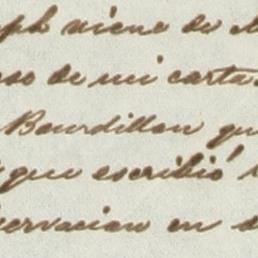 ph viene de
so de mi carta
Bourdillon qu
que escribió
ervacion en d